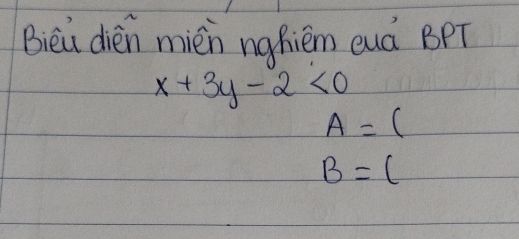 Biểu diễn miền nghiệm của BPT
x + 3y - 2 < 0
A = (
B = (